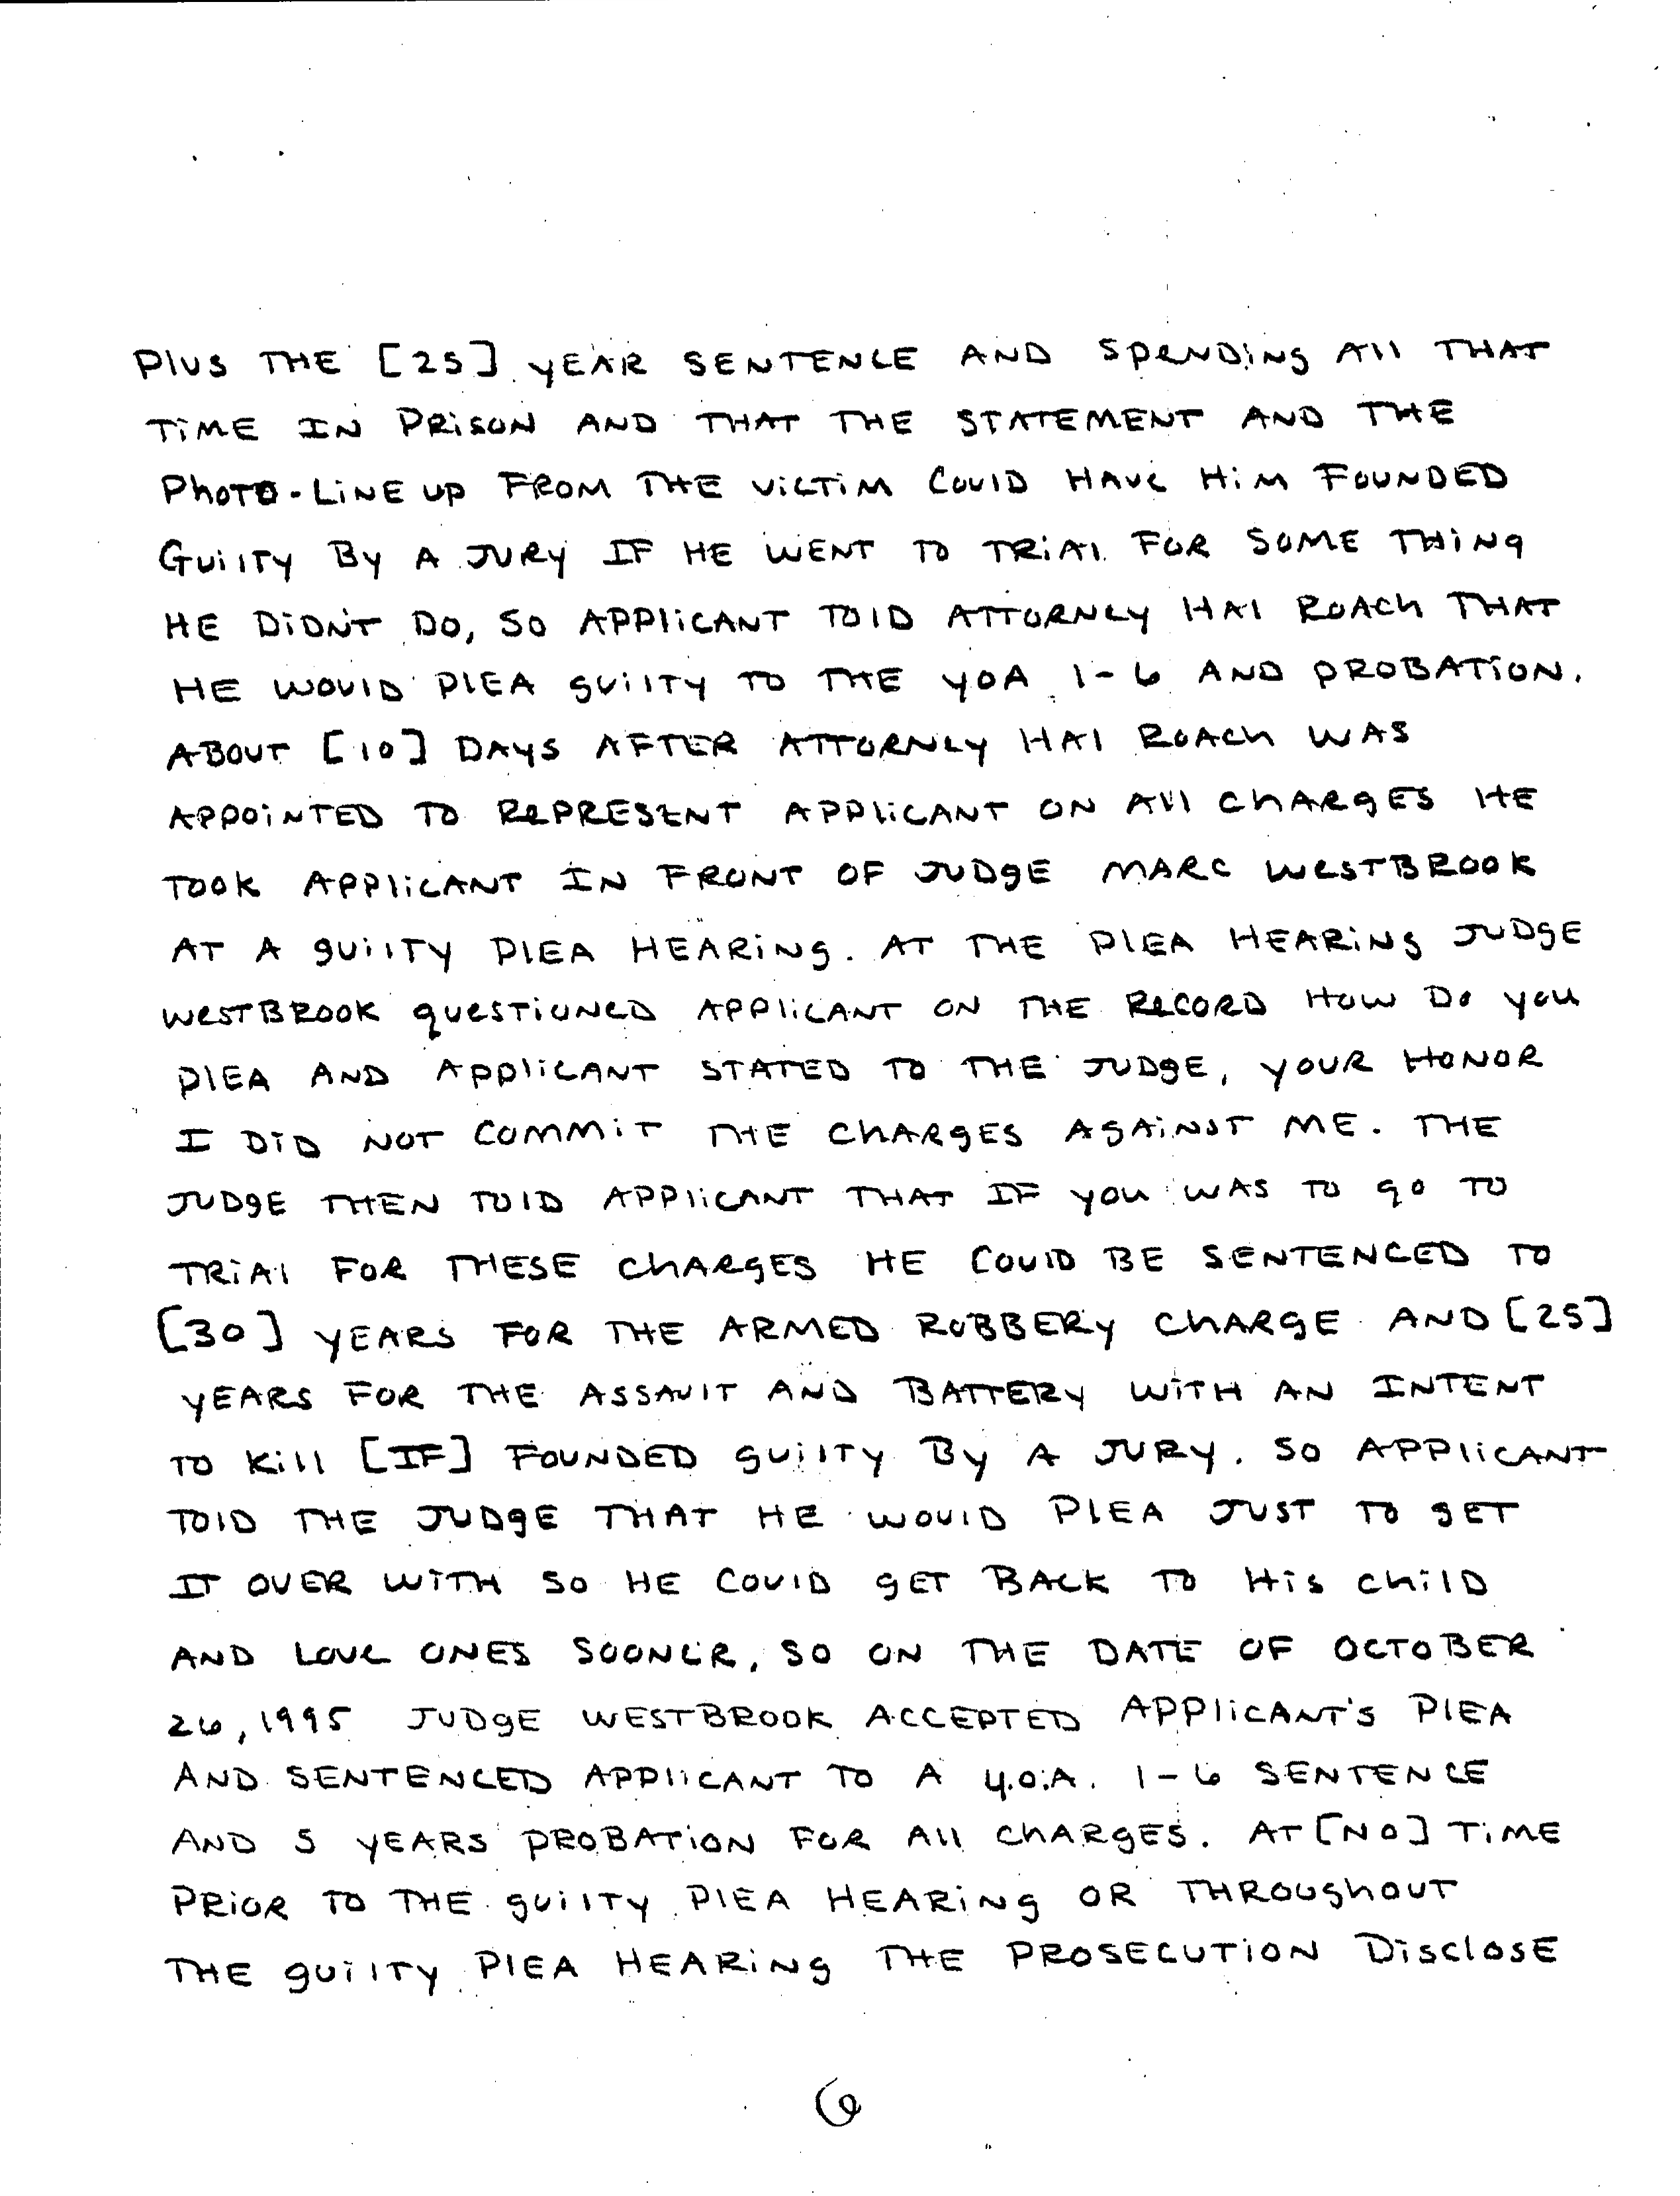 PlUS THE [25] YEAR SENTENCE AND SpeNDiNg All THAT
TiME IN PRiSON AND THAT THE STATEMENT AND THE
PhoTO-LiNE up FROM THE ViCTiM COUlD HAVE HiM FOUNDED
GUilTY By A JURY IF HE WENT TO TRiAl FOR SOME THiNg
HE DiDN'T DO, SO APPliCANT TOlD ATTORNEY HAl ROACh THAT
HE WOUlD PlEA gUilTY TO THE YOA 1-6 AND PROBATiON.
ABOUT [10] DAYS AFTER ATTORNEY HAl ROACh WAS
APPOiNTED TO RePRESENT APPliCANT ON All ChARGES HE
TOOK APPliCANT IN FRONT OF JUDgE MARC WeSTBROOK
AT A gUilTY PlEA HEARiNg. AT THE PlEA HEARiNg JUDgE
WeSTBROOK qUeSTiONED APPliCANT ON THE ReCORD HOW Do you
PlEA AND APPliCANT STATED TO THE JUDgE, YOUR HONOR
I DiD NOT COMMiT THE ChARgES AgAiNST ME. THE
JUDgE THEN TOlD APPliCANT THAT IF you WAS TO gO TO
TRiAl FOR THESE ChARgES HE COUlD BE SENTENCED TO
[30] YEARS FOR THE ARMED ROBBERy ChARGE AND [25]
YEARS FOR THE ASSAUlT AND BATTERY WiTH AN INTENT
TO Kill [IF] FOUNDED gUilTY By A JURY. SO APPliCANT
TOlD THE JUDgE THAT HE WOUlD PlEA JUST TO gET
IT OVER WiTH SO HE COUlD gET BACK TO HiS ChilD
AND LOVE ONES SOONER, SO ON THE DATE OF OCTOBER
26, 1995 JUDgE WESTBROOK ACCEPTED APPliCANT'S PlEA
AND SENTENCED APPliCANT TO A Y.O.A. 1-6 SENTENCE
AND 5 YEARS PROBATiON FOR All ChARGES. AT [NO] TiME
PRiOR TO THE gUilTY PlEA HEARiNg OR THROUghOUT
THE gUilTY PlEA HEARiNg THE PROSECUTiON DisclOSE
6